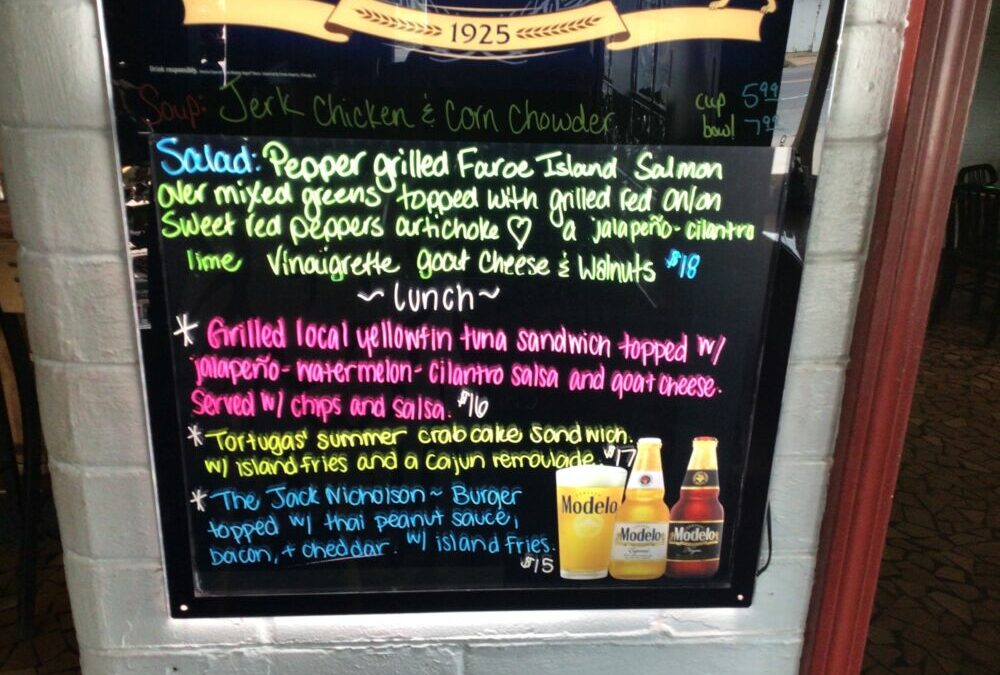 1925
Drink responsibly.
Soup: Jerk Chicken & Corn Chowder cup 5.99
bowl 7.99
Salad: Pepper grilled Faroe Island Salmon
over mixed greens topped with grilled red onion
Sweet red peppers artichoke ♡ a jalapeño-cilantro
lime Vinaigrette goat cheese & Walnuts $18
~ Lunch ~
* Grilled local yellowfin tuna sandwich topped w/
jalapeño-watermelon-cilantro salsa and goat cheese.
Served w/ chips and salsa. $16
* Tortugas' summer crabcake sandwich.
w/ island fries and a cajun remoulade. $17
* The Jack Nicholson ~ Burger
topped w/ thai peanut sauce,
bacon, + cheddar. w/ island fries.
$15
Modelo
Modelo
Especial
Modelo
Negra